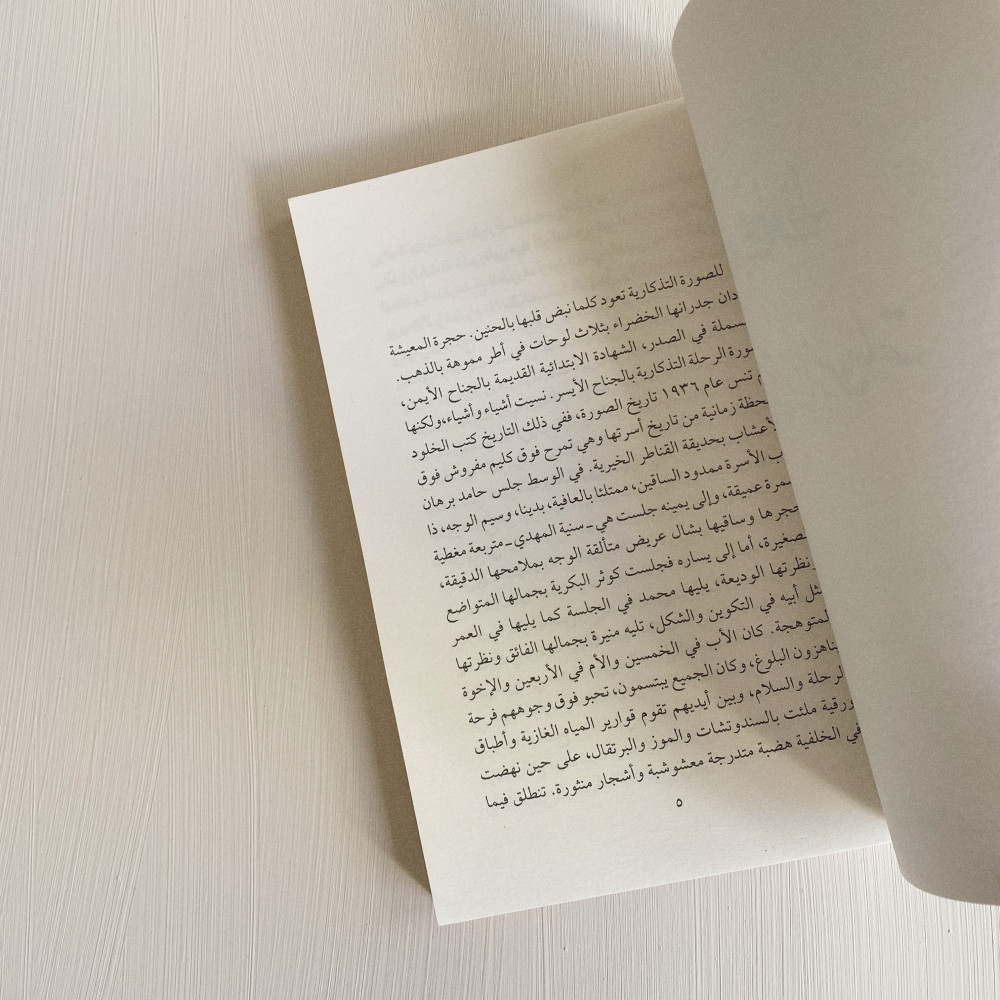 للصورة التذكارية تعود كلما نبض قلبها بالحنين. حجرة المعيشة
جدرانها الخضراء بثلاث لوحات في أطر مموهة بالذهب.
في الصدر، الشهادة الابتدائية القديمة بالجناح الأيمن،
الرحلة التذكارية بالجناح الأيسر. نسيت أشياء وأشياء،ولكنها
تنس عام ١٩٣٦ تاريخ الصورة، ففي ذلك التاريخ كتب الخلود
زمانية من تاريخ أسرتها وهي تمرح فوق كليم مفروش فوق
بحديقة القناطر الخيرية. في الوسط جلس حامد برهان
الأسرة ممدود الساقين، ممتلئا بالعافية، بدينا، وسيم الوجه، ذا
عميقة، وإلى يمينه جلست هي ـ سنية المهدي ـ متربعة مغطية
وساقيها بشال عريض متألقة الوجه بملامحها الدقيقة،
أما إلى يساره فجلست كوثر البكرية بجمالها المتواضع
ونظرتها الوديعة، يليها محمد في الجلسة كما يليها في العمر
أبيه في التكوين والشكل، تليه منيرة بجمالها الفائق ونظرتها
كان الأب في الخمسين والأم في الأربعين والإخوة
البلوغ، وكان الجميع يبتسمون، تحبو فوق وجوههم فرحة
والسلام، وبين أيديهم تقوم قوارير المياه الغازية وأطباق
ملئت بالسندوتشات والموز والبرتقال، على حين نهضت
في الخلفية هضبة متدرجة معشوشبة وأشجار منثورة. تنطلق فيما
٥